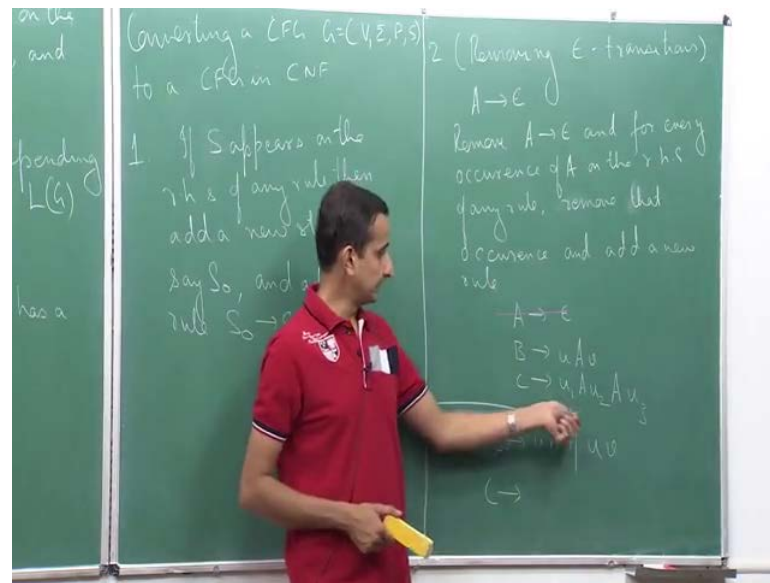 on the
, and
pending
L(G)
has a
Converting a CFG G=(V, Σ, P, S)
to a CFG in CNF
1. If S appears on the
r h s of any rule then
add a new
say S₀, and
rule S₀ →
2 (Removing ϵ-transitions)
A → ϵ
Remove A → ϵ and for every
occurence of A on the r h s
of any rule, remove that
occurence and add a new
rule
A → ϵ
B → uAv
C → u₁Au₂Au₃
→ uv
C →